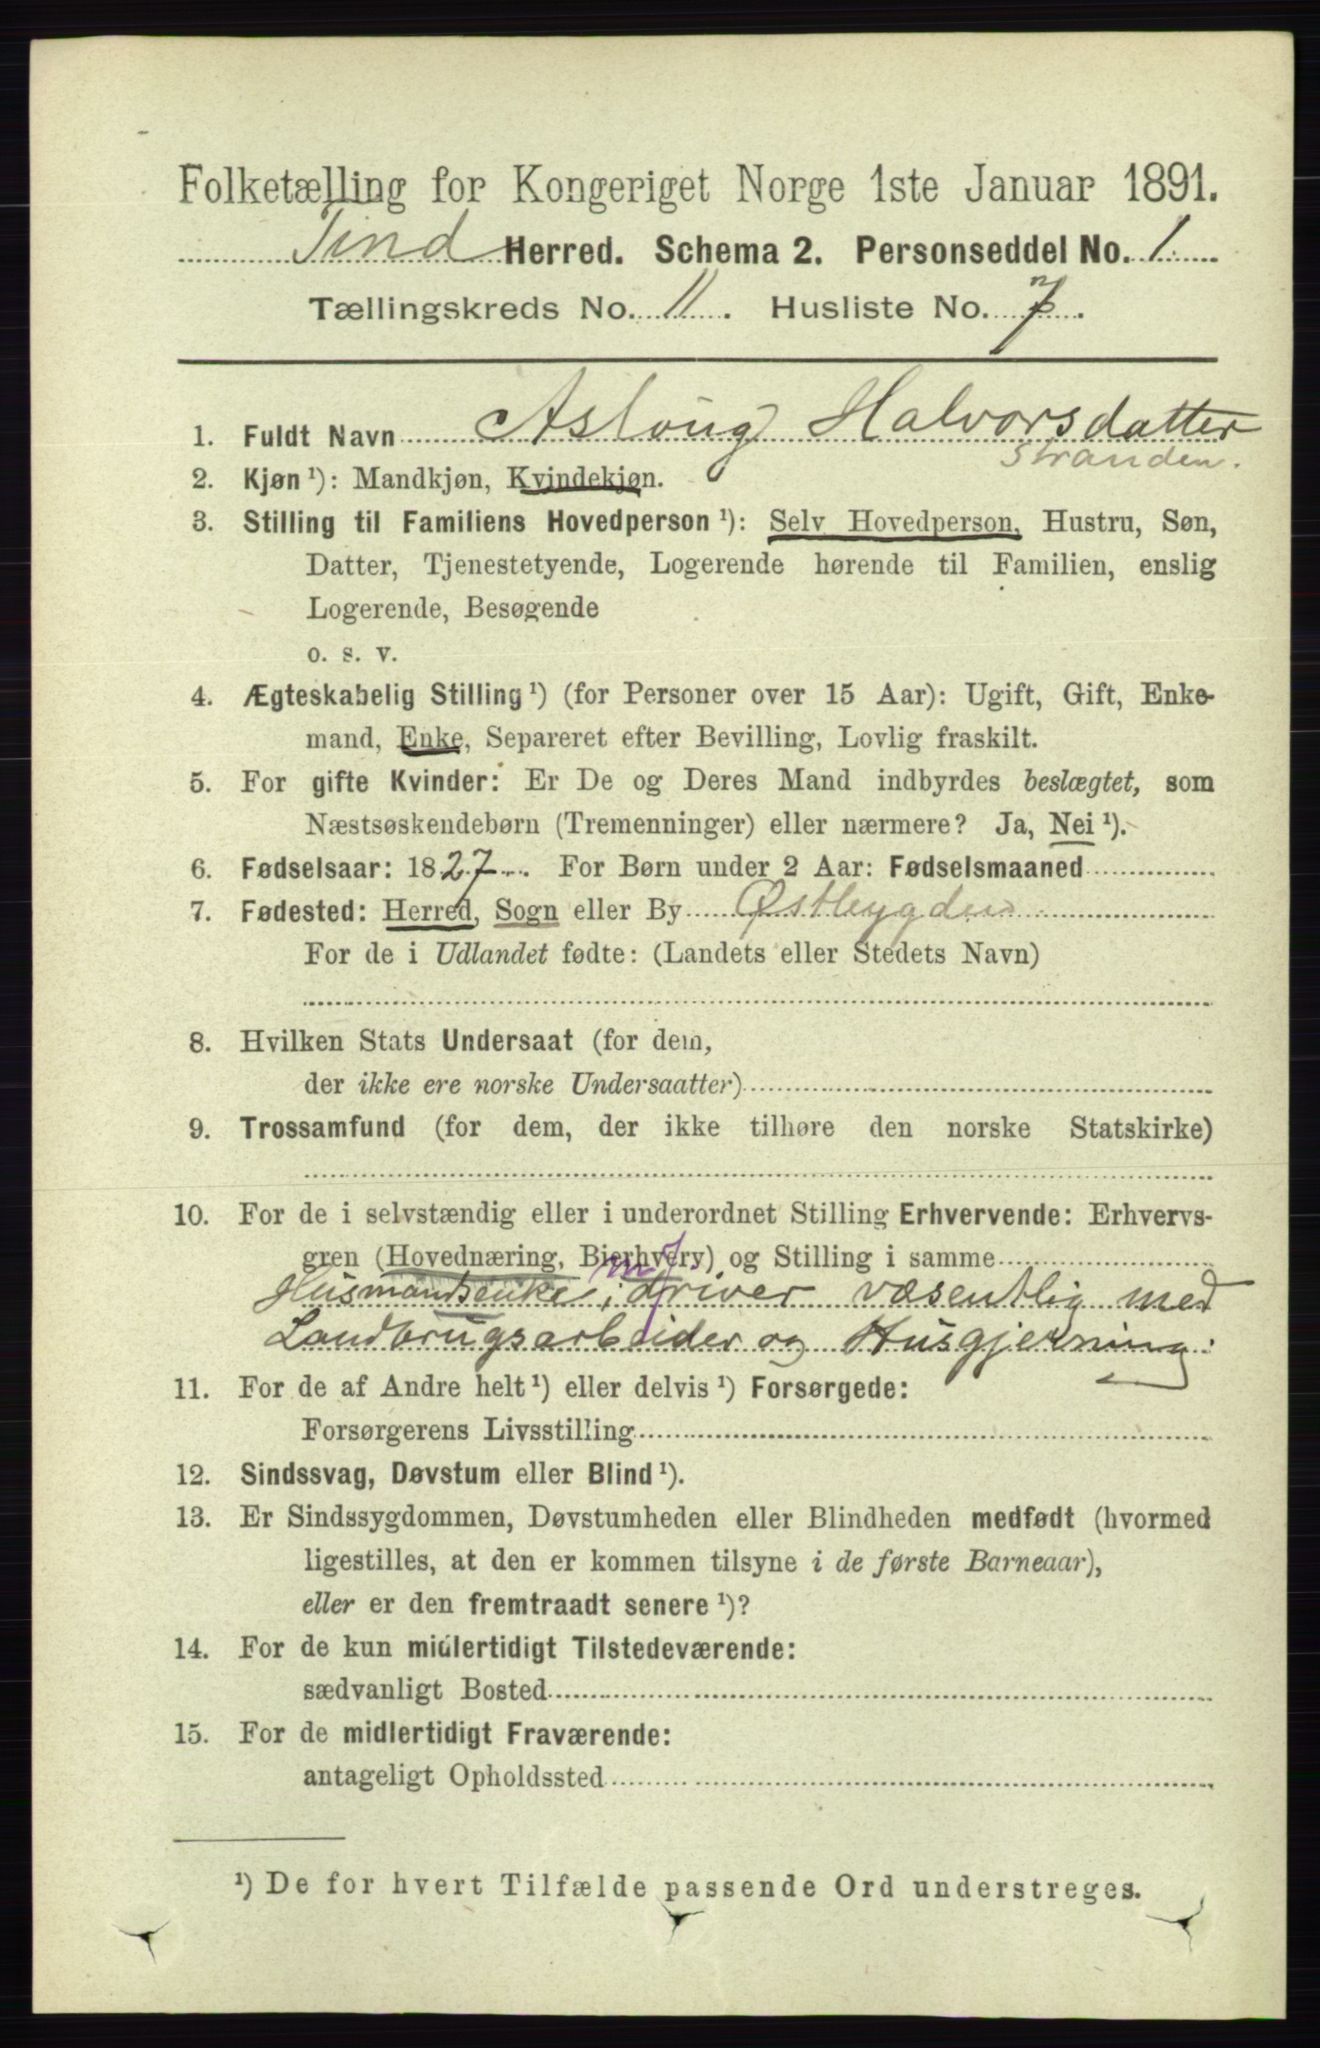 Folketælling for Kongeriget Norge 1ste Januar 1891.
Tind Herred. Schema 2. Personseddel No. 1
Tællingskreds No. 11. Husliste No. 7.
1. Fuldt Navn Aslaug Halvorsdatter
Stranden.
2. Kjøn ¹): Mandkjøn, Kvindekjøn.
3. Stilling til Familiens Hovedperson ¹): Selv Hovedperson, Hustru, Søn,
Datter, Tjenestetyende, Logerende hørende til Familien, enslig
Logerende, Besøgende
o. s. v.
4. Ægteskabelig Stilling ¹) (for Personer over 15 Aar): Ugift, Gift, Enke-
mand, Enke, Separeret efter Bevilling, Lovlig fraskilt.
5. For gifte Kvinder: Er De og Deres Mand indbyrdes beslægtet, som
Næstsøskendebørn (Tremenninger) eller nærmere? Ja, Nei ¹).
6. Fødselsaar: 1827. For Børn under 2 Aar: Fødselsmaaned
7. Fødested: Herred, Sogn eller By Østbygden
For de i Udlandet fødte: (Landets eller Stedets Navn)
8. Hvilken Stats Undersaat (for dem,
der ikke ere norske Undersaatter)
9. Trossamfund (for dem, der ikke tilhøre den norske Statskirke)
10. For de i selvstændig eller i underordnet Stilling Erhvervende: Erhvervs-
gren (Hovednæring, Bierhverv) og Stilling i samme
Husmandsenke; driver væsentlig med
Landbrugsarbeider og Husgjerning.
11. For de af Andre helt ¹) eller delvis ¹) Forsørgede:
Forsørgerens Livsstilling
12. Sindssvag, Døvstum eller Blind ¹).
13. Er Sindssygdommen, Døvstumheden eller Blindheden medfødt (hvormed
ligestilles, at den er kommen tilsyne i de første Barneaar),
eller er den fremtraadt senere ¹)?
14. For de kun midlertidigt Tilstedeværende:
sædvanligt Bosted
15. For de midlertidigt Fraværende:
antageligt Opholdssted
¹) De for hvert Tilfælde passende Ord understreges.